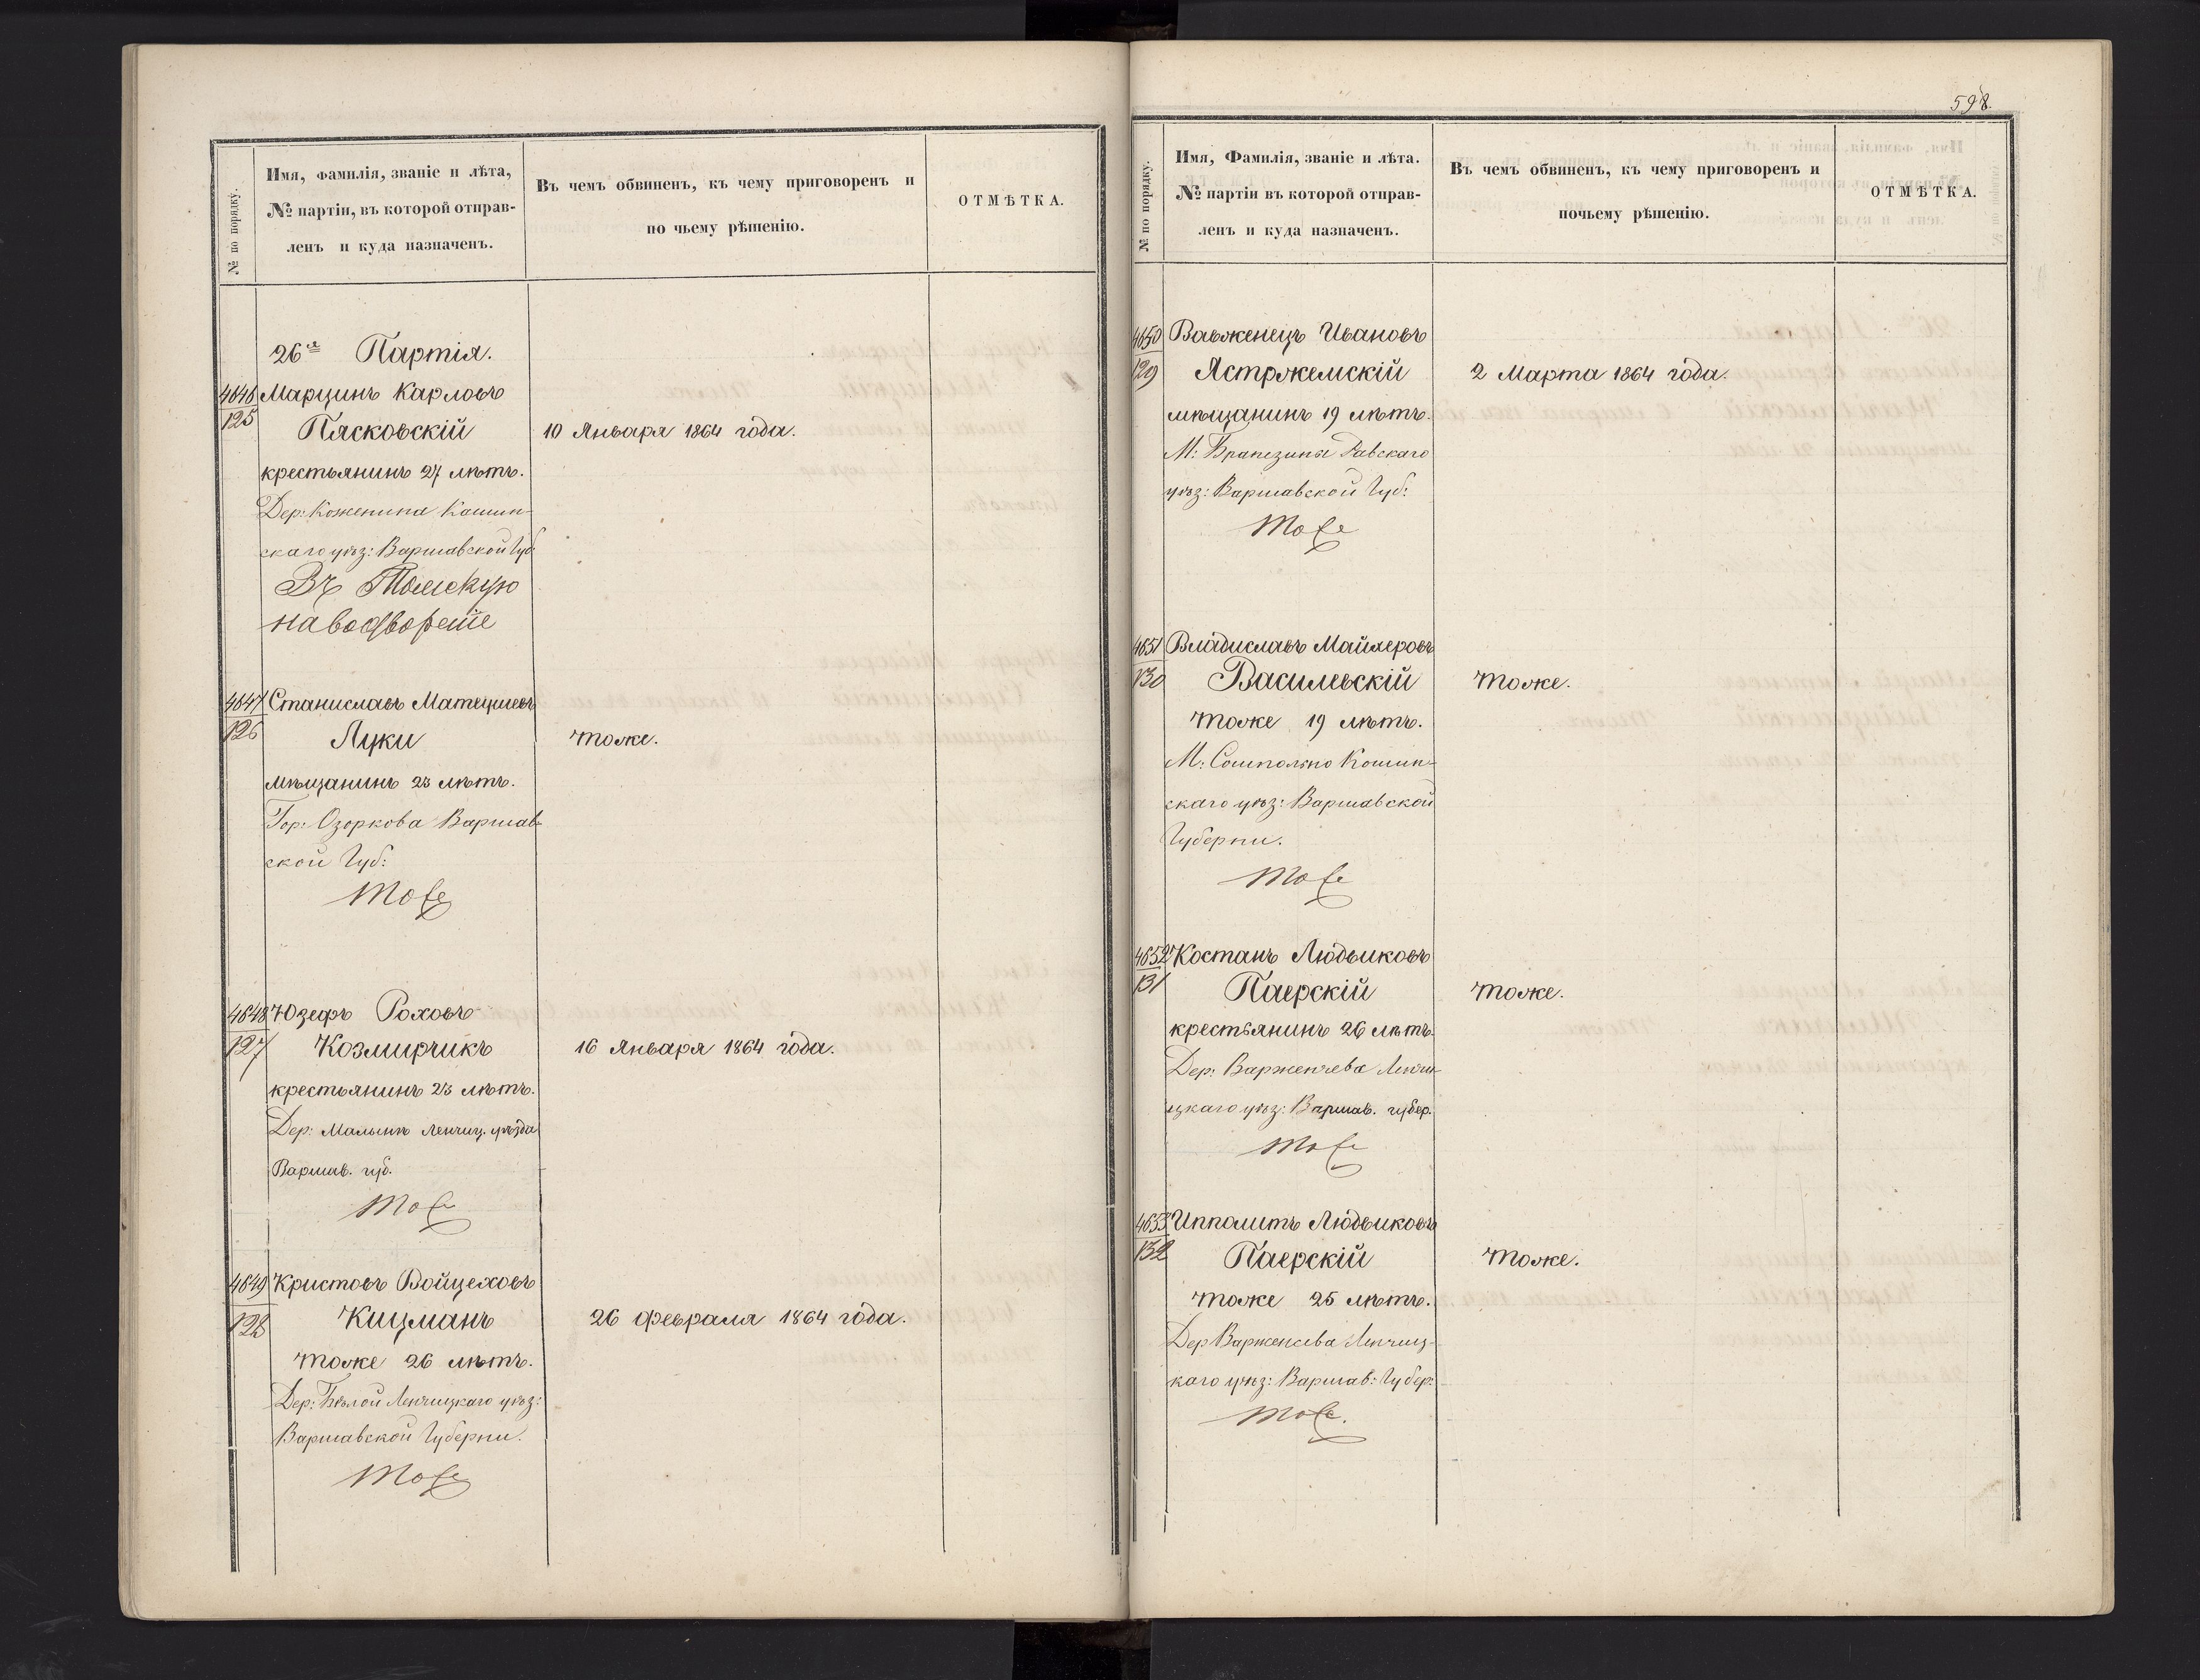 № по порядку.
Имя, фамилія, званіе и лѣта,
№ партіи, въ которой отправ-
ленъ и куда назначенъ.
Въ чемъ обвиненъ, къ чему приговоренъ и
по чьему рѣшенію.
ОТМѢТКА.
26я Партія.
4646
125
Марцинъ Карловъ
Пясковскій
10 Января 1864 года.
крестьянинъ 27 лѣтъ.
Дер: Коженина Конин-
скаго уѣз: Варшавской Губ
Въ Томскую
на водвореніе
4647
126
Станиславъ Матеушевъ
Луки
тоже.
мѣщанинъ 23 лѣтъ.
Гор: Озоркова Варшав-
ской Губ:
Тоже
4648
127
Юзефъ Роховъ
Козмирчикъ
16 Января 1864 года.
крестьянинъ 23 лѣтъ.
Дер: Малынь Ленчиц. уѣзда
Варшав. губ.
Тоже
4649
128
Кристовъ Войцеховъ
Кицманъ
26 февраля 1864 года.
тоже 26 лѣтъ.
Дер: Бѣлой Ленчицкаго уѣз:
Варшавской Губерни.
Тоже
598.
№ по порядку.
Имя, Фамилія, званіе и лѣта.
№ партіи въ которой отправ-
ленъ и куда назначенъ.
Въ чемъ обвиненъ, къ чему приговоренъ и
почьему рѣшенію.
ОТМѢТКА.
4650
129
Вавженецъ Ивановъ
Ястржемскій
2 Марта 1864 года.
мѣщанинъ 19 лѣтъ.
М: Брапезины Равскаго
уѣз: Варшавской Губ:
Тоже
4651
130
Владиславъ Майхеровъ
Василевскій
тоже.
тоже 19 лѣтъ.
М: Сомпольно Конин-
скаго уѣз: Варшавской
Губерни.
Тоже
4652
131
Костанъ Людвиковъ
Паерскій
тоже.
крестьянинъ 26 лѣтъ.
Дер: Варженчева Ленчи-
цкаго уѣз: Варшав. губер.
Тоже
4653
132
Ипполитъ Людвиковъ
Паерскій
тоже.
тоже 25 лѣтъ.
Дер Варженсева Ленчиц-
каго уѣз: Варшав: Губер:
Тоже.